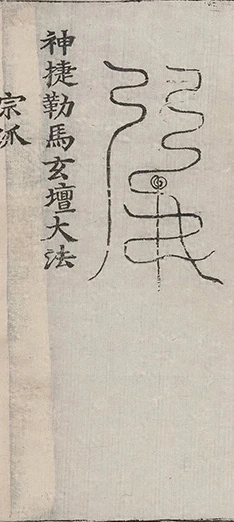 神捷勒馬玄壇大法
宗派